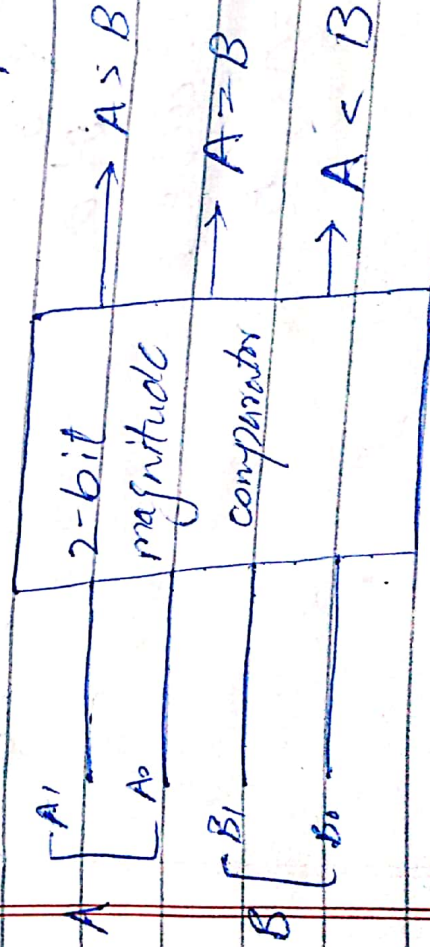 A
A1
A0
B
B1
B0
2-bit
magnitude
comparator
→ A > B
→ A = B
→ A < B